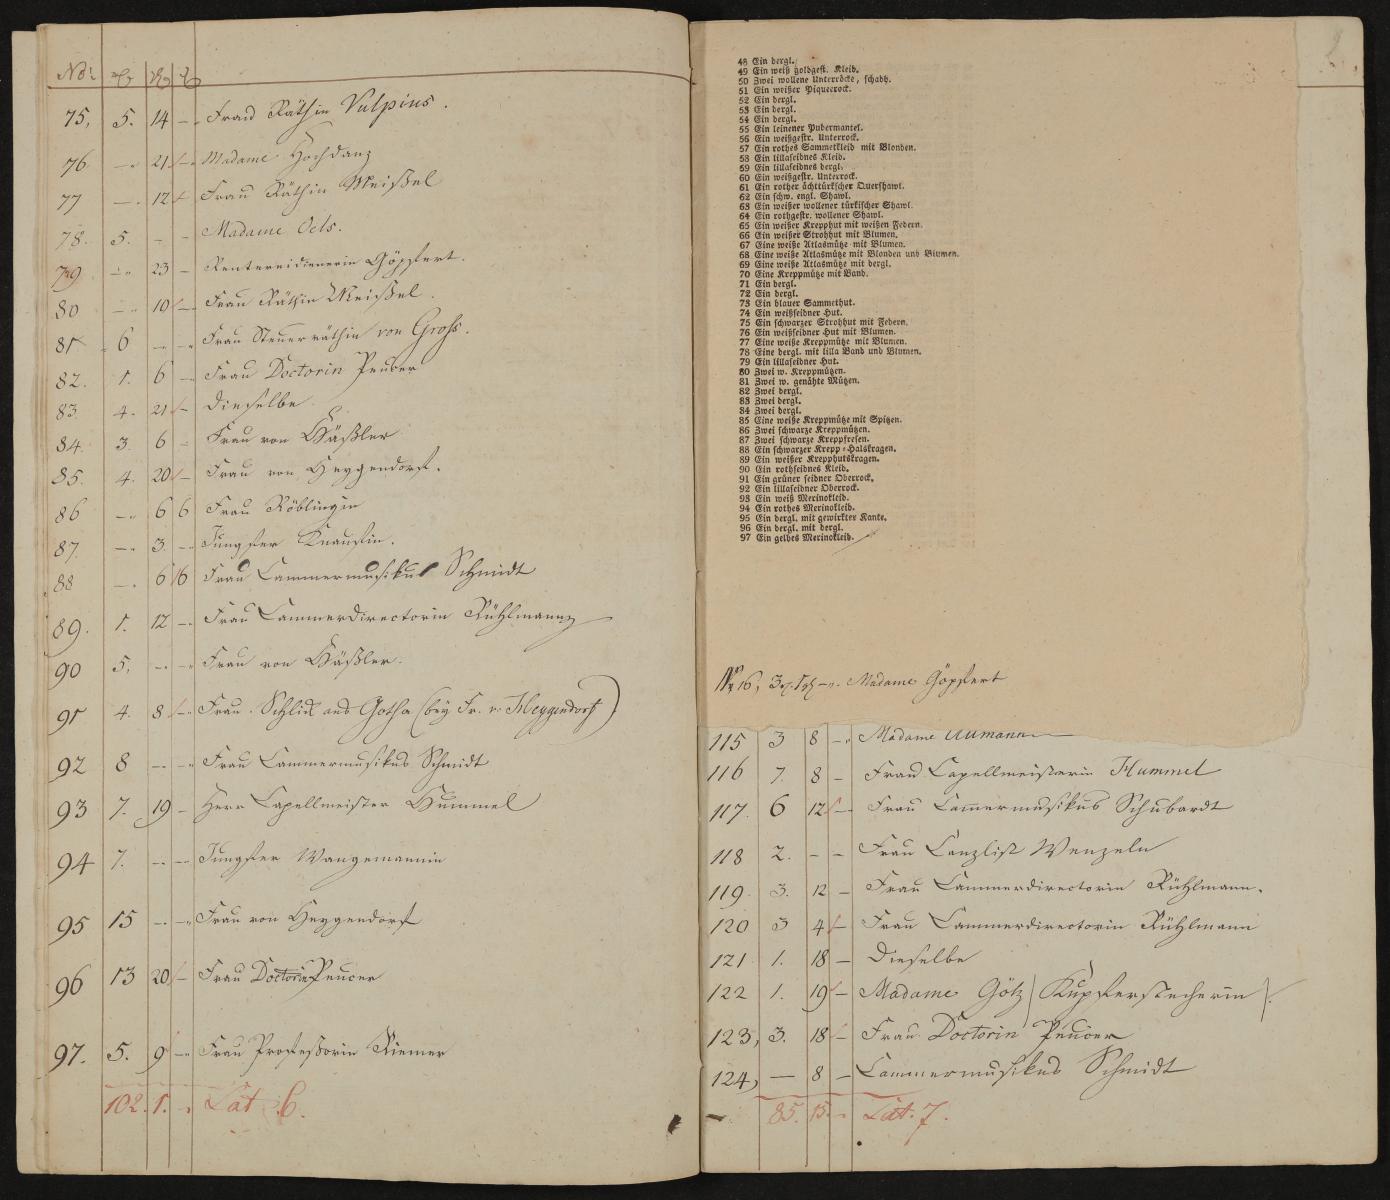 No: rh gr
75, 5. 14 – Frau Räthin Vulpius.
76 – 21 – Madame Hochdanz
77 – 12 – Frau Räthin Meißel
78. 5. – – Madame Oels.
79 – 23 – Rentereidienerin Göpfert.
80 – 10 – Frau Räthin Meißel.
81 6 – – Frau Steuerräthin von Gross.
82. 1. 6 – Frau Doctorin Peucer
83. 4. 21 – Dieselbe
84. 3. 6 – Frau von Häßler
85. 4. 20 – Frau von Heygendorf.
86 – 6 6 Frau Röblingin
87. – 3 – Jungfer Knaustin.
88 – 6 6 Frau Cammermusikus Schmidt
89. 1. 12 – Frau Cammerdirectorin Rühlmann
90 5, – – Frau von Häßler.
91 4. 8 – Frau Schlick aus Gotha (bey Fr. v. Heygendorf)
92 8 – – Frau Cammermusikus Schmidt
93 7. 19 – Herr Capellmeister Hummel
94 7. – – Jungfer Wangemannin
95 15 – – Frau von Heygendorf
96 13 20 – Frau Doctorin Peucer
97. 5. 9 – Frau Professorin Riemer
102. 1. – Lat. 6.
48 Ein dergl.
49 Ein weiß goldgest. Kleid.
50 Zwei wollene Unterröcke, schadh.
51 Ein weißer Piqueerock.
52 Ein dergl.
53 Ein dergl.
54 Ein dergl.
55 Ein leinener Pudermantel.
56 Ein weißgestr. Unterrock.
57 Ein rothes Sammetkleid mit Blonden.
58 Ein lillaseidnes Kleid.
59 Ein lillaseidnes dergl.
60 Ein weißgestr. Unterrock.
61 Ein rother ächttürkscher Quershawl.
62 Ein schw. engl. Shawl.
63 Ein weißer wollener türkischer Shawl.
64 Ein rothgestr. wollener Shawl.
65 Ein weißer Krepphut mit weißen Federn.
66 Ein weißer Strohhut mit Blumen.
67 Eine weiße Atlasmütze mit Blumen.
68 Eine weiße Atlasmütze mit Blonden und Blumen.
69 Eine weiße Atlasmütze mit dergl.
70 Eine Kreppmütze mit Band.
71 Ein dergl.
72 Ein dergl.
73 Ein blauer Sammethut.
74 Ein weißseidner Hut.
75 Ein schwarzer Strohhut mit Federn.
76 Ein weißseidner Hut mit Blumen.
77 Eine weiße Kreppmütze mit Blumen.
78 Eine dergl. mit lilla Band und Blumen.
79 Ein lillaseidner Hut.
80 Zwei w. Kreppmützen.
81 Zwei w. genähte Mützen.
82 Zwei dergl.
83 Zwei dergl.
84 Zwei dergl.
85 Eine weiße Kreppmütze mit Spitzen.
86 Zwei schwarze Kreppmützen.
87 Zwei schwarze Kreppfresen.
88 Ein schwarzer Krepp-Halskragen.
89 Ein weißer Krepphutskragen.
90 Ein rothseidnes Kleid.
91 Ein grüner seidner Oberrock.
92 Ein lillaseidner Oberrock.
93 Ein weiß Merinokleid.
94 Ein rothes Merinokleid.
95 Ein dergl. mit gewirkter Kante.
96 Ein dergl. mit dergl.
97 Ein gelbes Merinokleid.
Madame Göpfert
115 3 8 – Madame Aumann
116 7. 8 – Frau Capellmeisterin Hummel
117. 6 12 – Frau Cammermusikus Schubardt
118 2. – – Frau Canzlist Wenzeln
119. 3. 12 – Frau Cammerdirectorin Rühlmann.
120 3 4 – Frau Cammerdirectorin Rühlmann
121 1. 18 – Dieselbe
122 1. 19 – Madame Götz (Kupferstecherin).
123, 3. 18 – Frau Doctorin Peucer
124, – 8 – Cammermusikus Schmidt
85. 15. – Lat. 7.